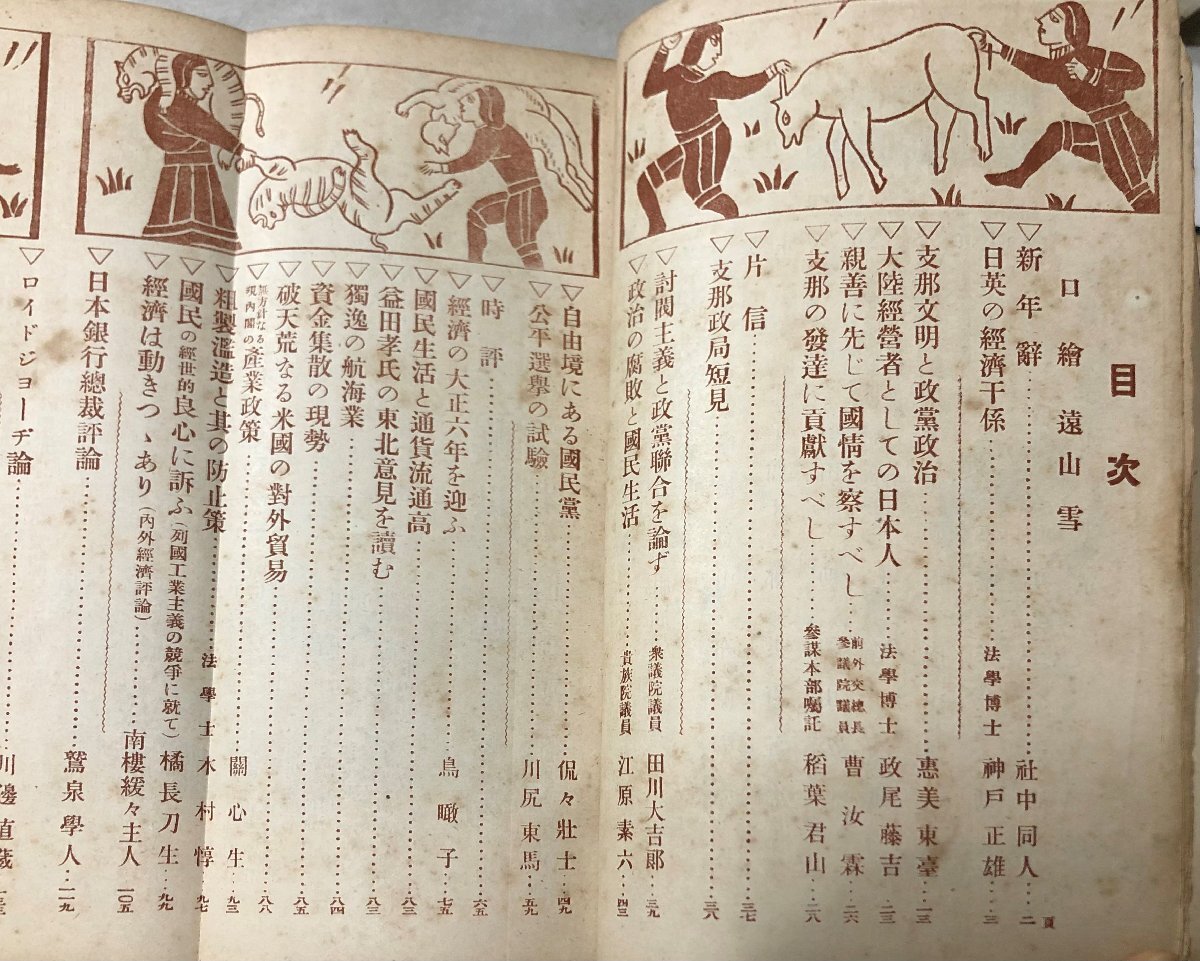 目次
口繪 遠山雪
▽新年辭……社中同人…二頁
▽日英の經濟干係……法學博士 神戸正雄…三
▽支那文明と政黨政治……惠美東臺…一三
▽大陸經營者としての日本人……法學博士 政尾藤吉…二三
▽親善に先じて國情を察すべし…前外交總長 參議院議員 曹汝霖…二六
▽支那の發達に貢獻すべし……參謀本部囑託 稻葉君山…二八
▽片信……三七
▽支那政局短見……三八
▽討閥主義と政黨聯合を論ず……衆議院議員 田川大吉郞…三九
▽政治の腐敗と國民生活……貴族院議員 江原素六…四三
▽自由境にある國民黨……侃々壯士…四九
▽公平選擧の試驗……川尻東馬…五九
▽時評……六五
▽經濟の大正六年を迎ふ……鳥瞰子…七五
▽國民生活と通貨流通高……八三
▽益田孝氏の東北意見を讀む……八三
▽獨逸の航海業……八四
▽資金集散の現勢……八五
▽破天荒なる米國の對外貿易……八八
▽無方針なる現內閣の產業政策……關心生…九三
▽粗製濫造と其の防止策……法學士 木村惇…九七
▽國民の經世的良心に訴ふ(列國工業主義の競爭に就て)橘長刀生…九九
▽經濟は動きつゝあり(內外經濟評論)……南樓緩々主人…一〇五
▽日本銀行總裁評論……鷲泉學人…一一九
ロイドジョーヂ論……川邊直藏